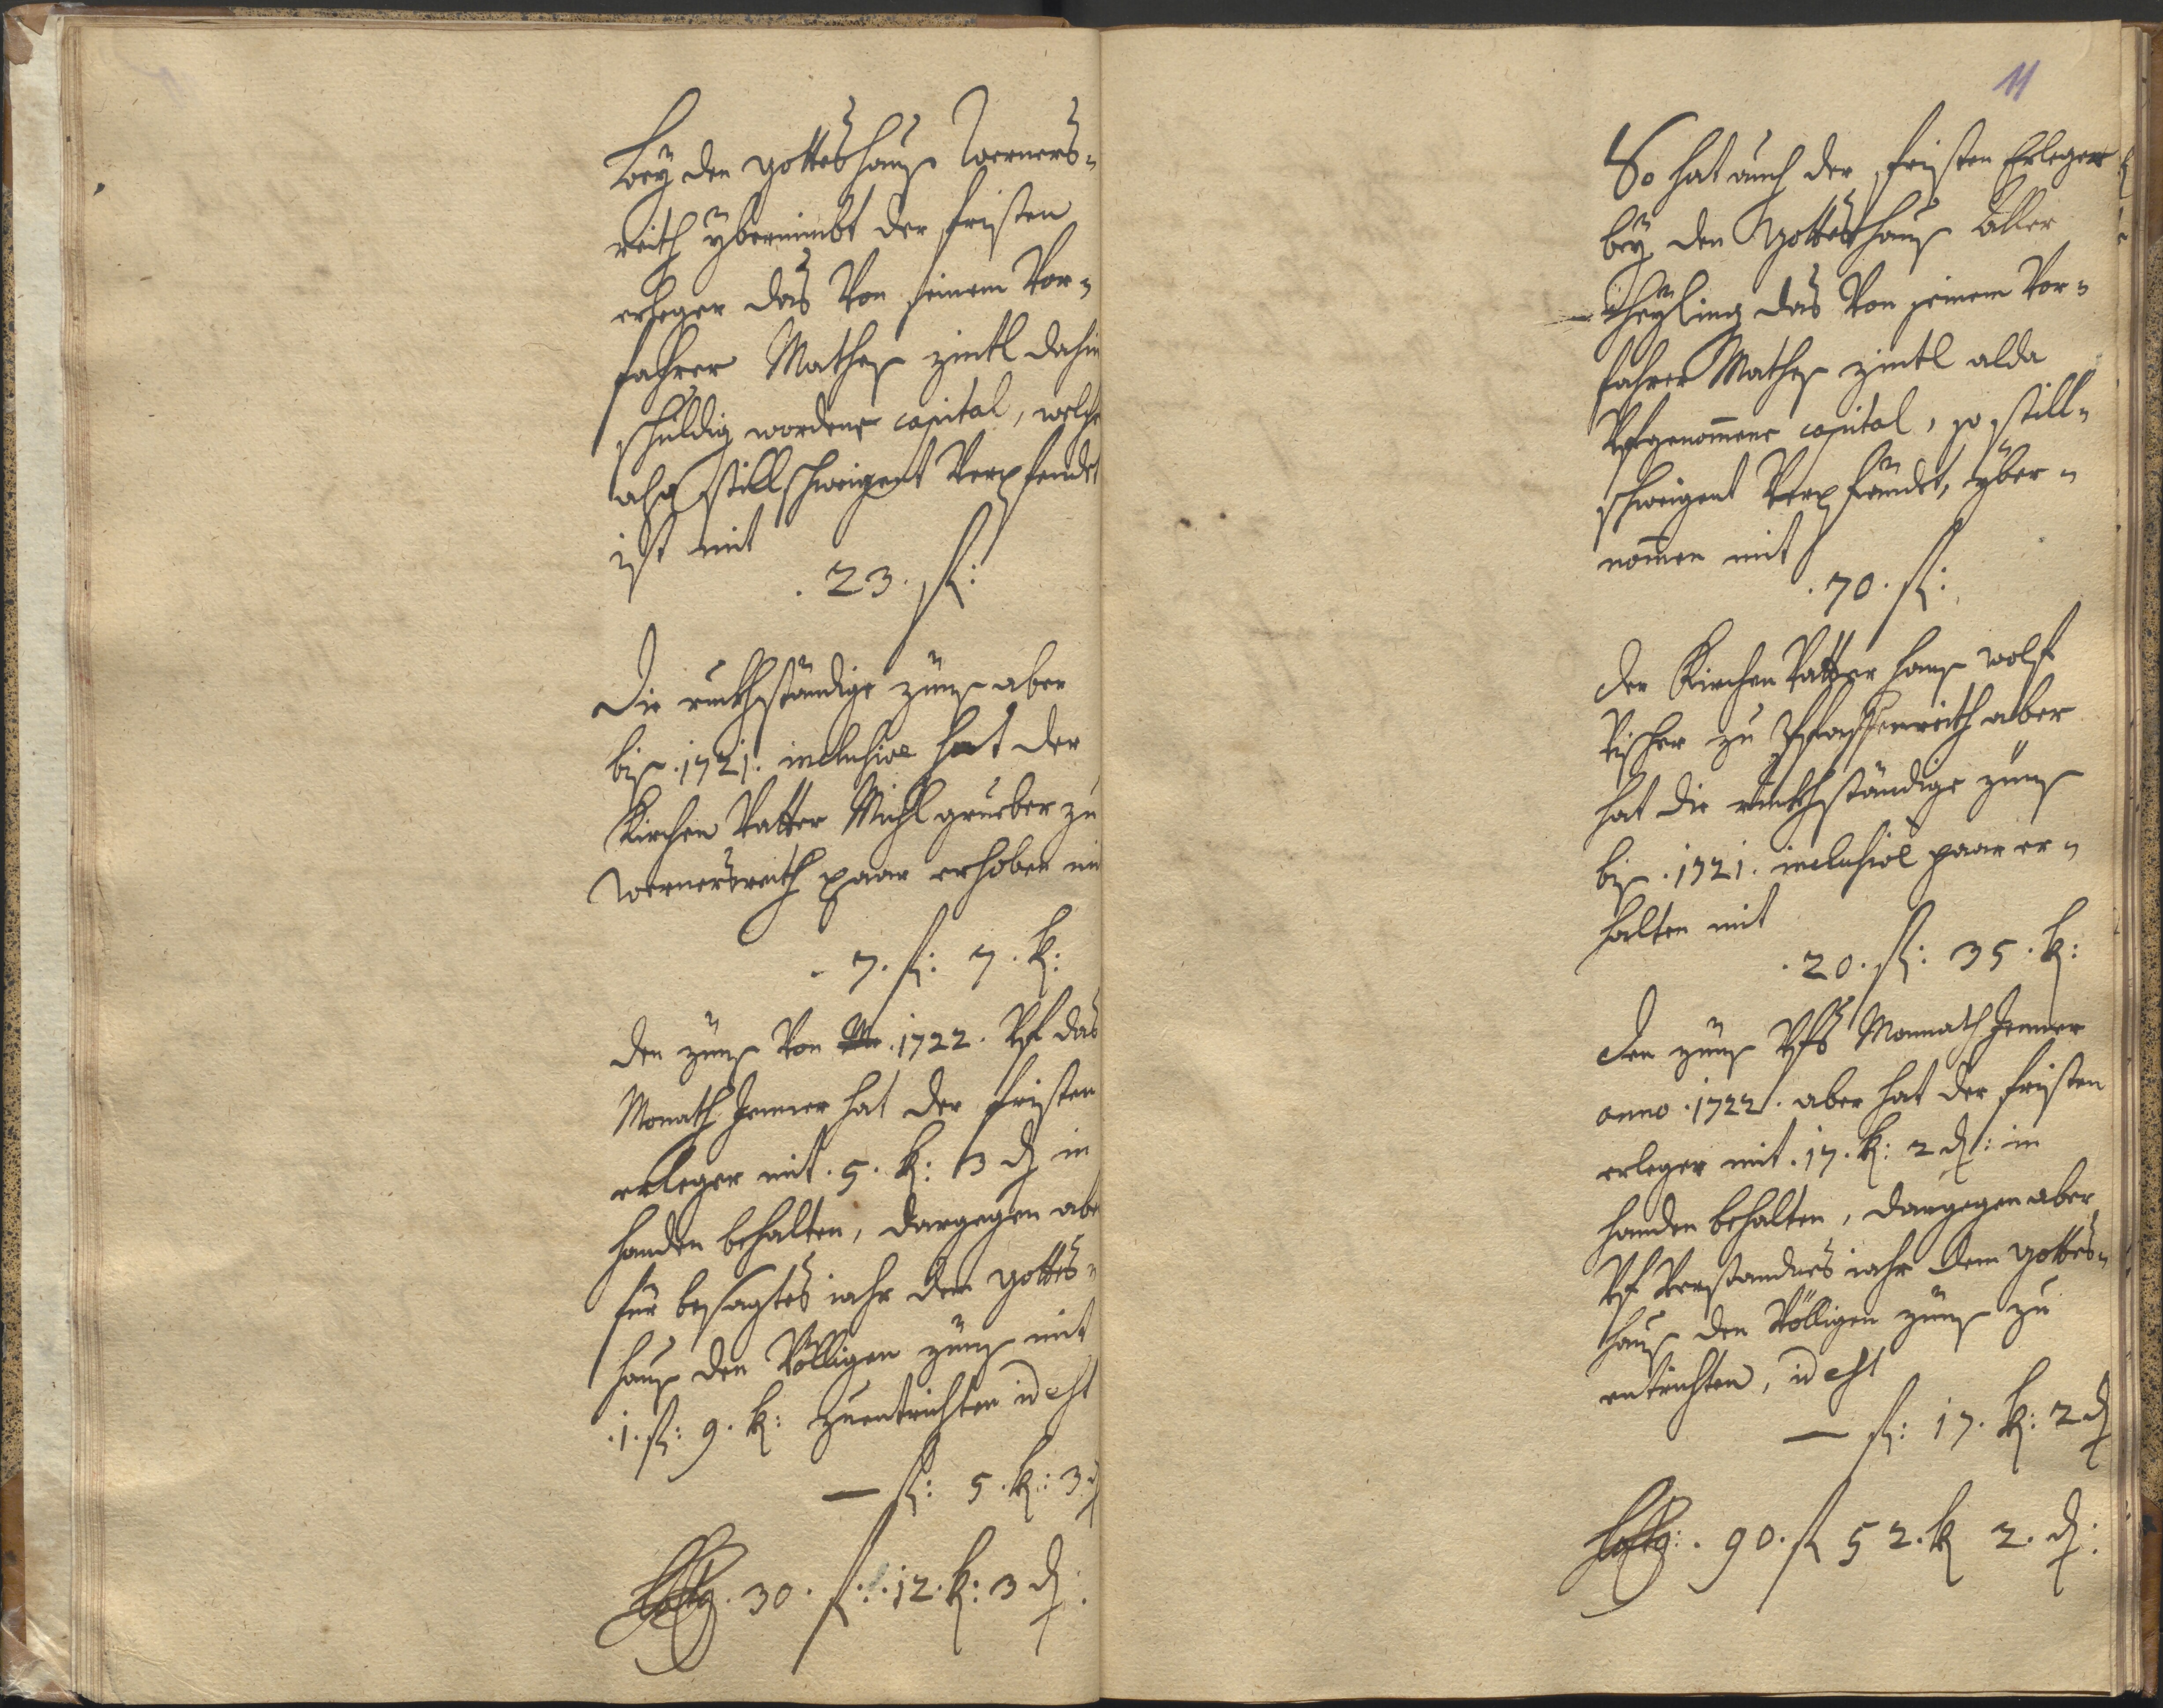 Bey den gottes hauß Werners¬
reith ybernimbt der fristen
erleger das Von seinem Vor¬
fahrer Mathes zintl dahin
schuldig wordene capital, welche
also stillschweigent Verpfendt
ist mit
. 23. fl:
Die ruckhständige zünß aber
biß .1721. inclusive hat der
Kirchen Vatter Michl grueber zu
Wernersreith paar erhoben mit
. 7. fl: 7. k:
den zünß Von .1722. Vf das
Monath Jenner hat der fristen
erleger mit .5. k: 3 d in
handen behalten, dargegen aber
für besagtes iahr dem gottes¬
hauß den Völligen zünß mit
.1. fl: 9. k: zuentrichten id est
— fl: 5. k: 3 d
. 30. fl: .12. k: 3 d:
11
So hat auch der fristen Erleger
bey den Gottes hauß Aller
theyling das Von seinem Vor¬
fahrer Mathes zintl alda
Vfgenomene capital, so still¬
schweigent Verpfändt, yber¬
nommen mit
. 70. fl:
der Kirchen Vatter hanß wolf
Vischer zu Pfaffenreith aber
hat die ruckhständige zünß
biß .1721. inclusive paar er¬
halten mit
. 20. fl: 35. k:
den zünß Vfs Monnath Jenner
anno .1722. aber hat der fristen
erleger mit .17. k: 2 d: in
handen behalten, dargegen aber
Vf Verstandnes iahr dem gottes¬
hauß den Völligen zünß zu
entrichten, id est
— fl: 17. k: 2 d
. 90. fl 52. k 2. d: